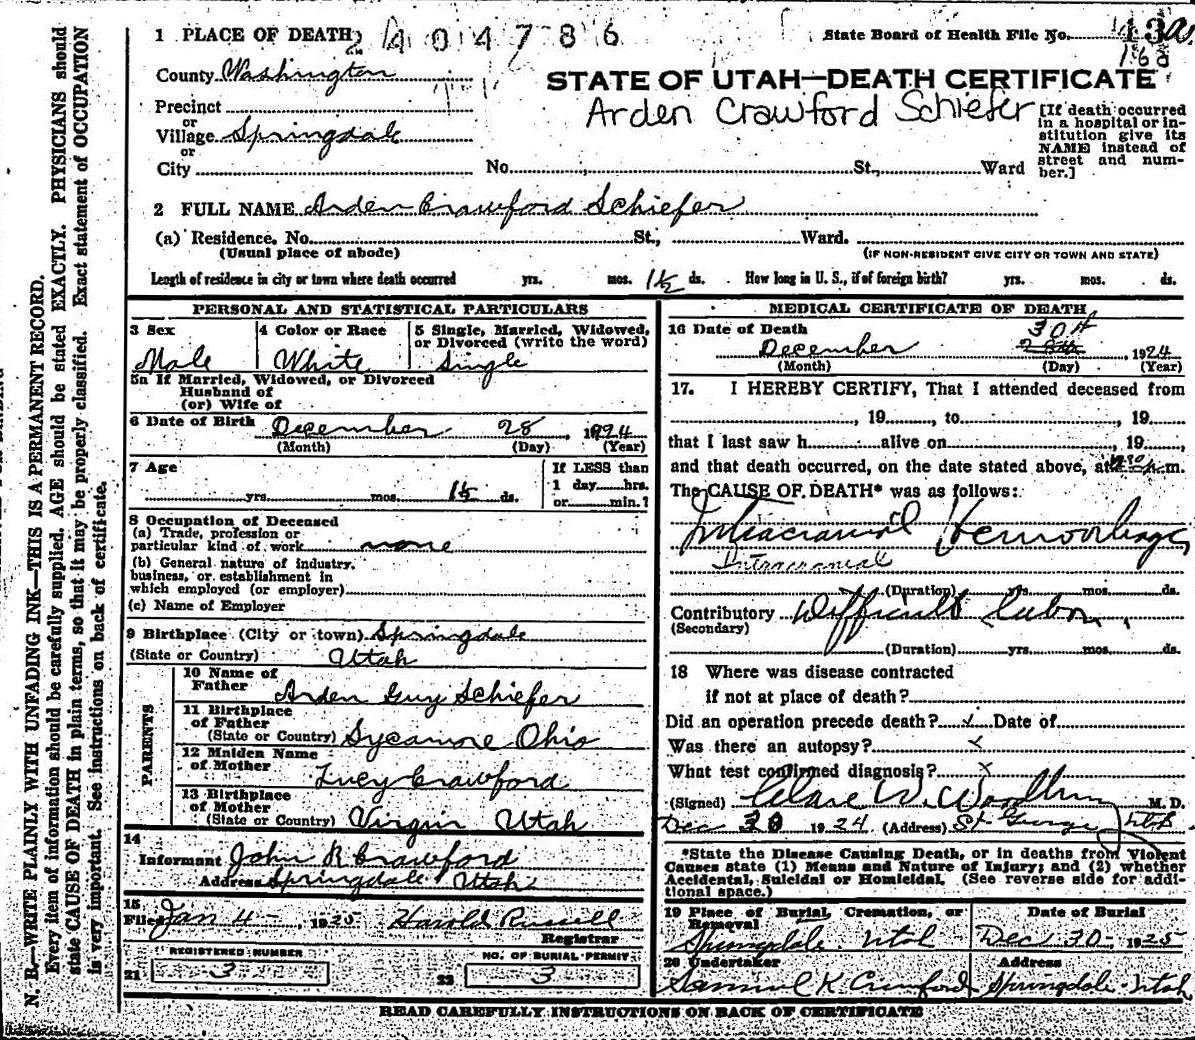 1 PLACE OF DEATH 2404786 State Board of Health File No. 13a
16a
County Washington
STATE OF UTAH—DEATH CERTIFICATE
Arden Crawford Schiefer
Precinct
or
Village Springdale
or
City No. St., Ward
[If death occurred
in a hospital or in-
stitution give its
NAME instead of
street and num-
ber.]
2 FULL NAME Arden Crawford Schiefer
(a) Residence. No. St., Ward.
(Usual place of abode) (IF NON-RESIDENT GIVE CITY OR TOWN AND STATE)
Length of residence in city or town where death occurred yrs. mos. 1½ ds. How long in U. S., if of foreign birth? yrs. mos. ds.
PERSONAL AND STATISTICAL PARTICULARS
3 Sex
Male
4 Color or Race
White
5 Single, Married, Widowed,
or Divorced (write the word)
Single
5a If Married, Widowed, or Divorced
Husband of
(or) Wife of
6 Date of Birth December 28, 1924
(Month) (Day) (Year)
7 Age
yrs. mos. 1½ ds.
If LESS than
1 day hrs.
or min.?
8 Occupation of Deceased
(a) Trade, profession or
particular kind of work none
(b) General nature of industry,
business, or establishment in
which employed (or employer)
(c) Name of Employer
9 Birthplace (City or town) Springdale
(State or Country) Utah
PARENTS
10 Name of
Father Arden Guy Schiefer
11 Birthplace
of Father
(State or Country) Sycamore Ohio
12 Maiden Name
of Mother Lucy Crawford
13 Birthplace
of Mother
(State or Country) Virgin Utah
14
Informant John R Crawford
Address Springdale Utah
15
Filed Jan 4 - 1925 Harold Russell
Registrar
REGISTERED NUMBER
21 3
NO. OF BURIAL PERMIT
22 3
MEDICAL CERTIFICATE OF DEATH
16 Date of Death 30th
December 28th, 1924
(Month) (Day) (Year)
17. I HEREBY CERTIFY, That I attended deceased from
, 19 , to , 19
that I last saw h alive on , 19 ,
and that death occurred, on the date stated above, at m.
The CAUSE OF DEATH* was as follows:
Intracranial Hemorrhage
Intracranial
(Duration) yrs. mos. ds.
Contributory Difficult Labor,
(Secondary)
(Duration) yrs. mos. ds.
18 Where was disease contracted
if not at place of death?
Did an operation precede death? Date of
Was there an autopsy? x
What test confirmed diagnosis? x
(Signed) Clare W. Woodbury M. D.
Dec 30 1924 (Address) St George Utah
*State the Disease Causing Death, or in deaths from Violent
Causes state (1) Means and Nature of Injury; and (2) whether
Accidental, Suicidal or Homicidal. (See reverse side for addi-
tional space.)
19 Place of Burial, Cremation, or
Removal
Springdale Utah
Date of Burial
Dec 30 - 1925
20 Undertaker
Samuel K. Crawford
Address
Springdale Utah
READ CAREFULLY INSTRUCTIONS ON BACK OF CERTIFICATE
N. B.—WRITE PLAINLY WITH UNFADING INK—THIS IS A PERMANENT RECORD.
Every item of information should be carefully supplied. AGE should be stated EXACTLY. PHYSICIANS should
state CAUSE OF DEATH in plain terms, so that it may be properly classified. Exact statement of OCCUPATION
is very important. See instructions on back of certificate.